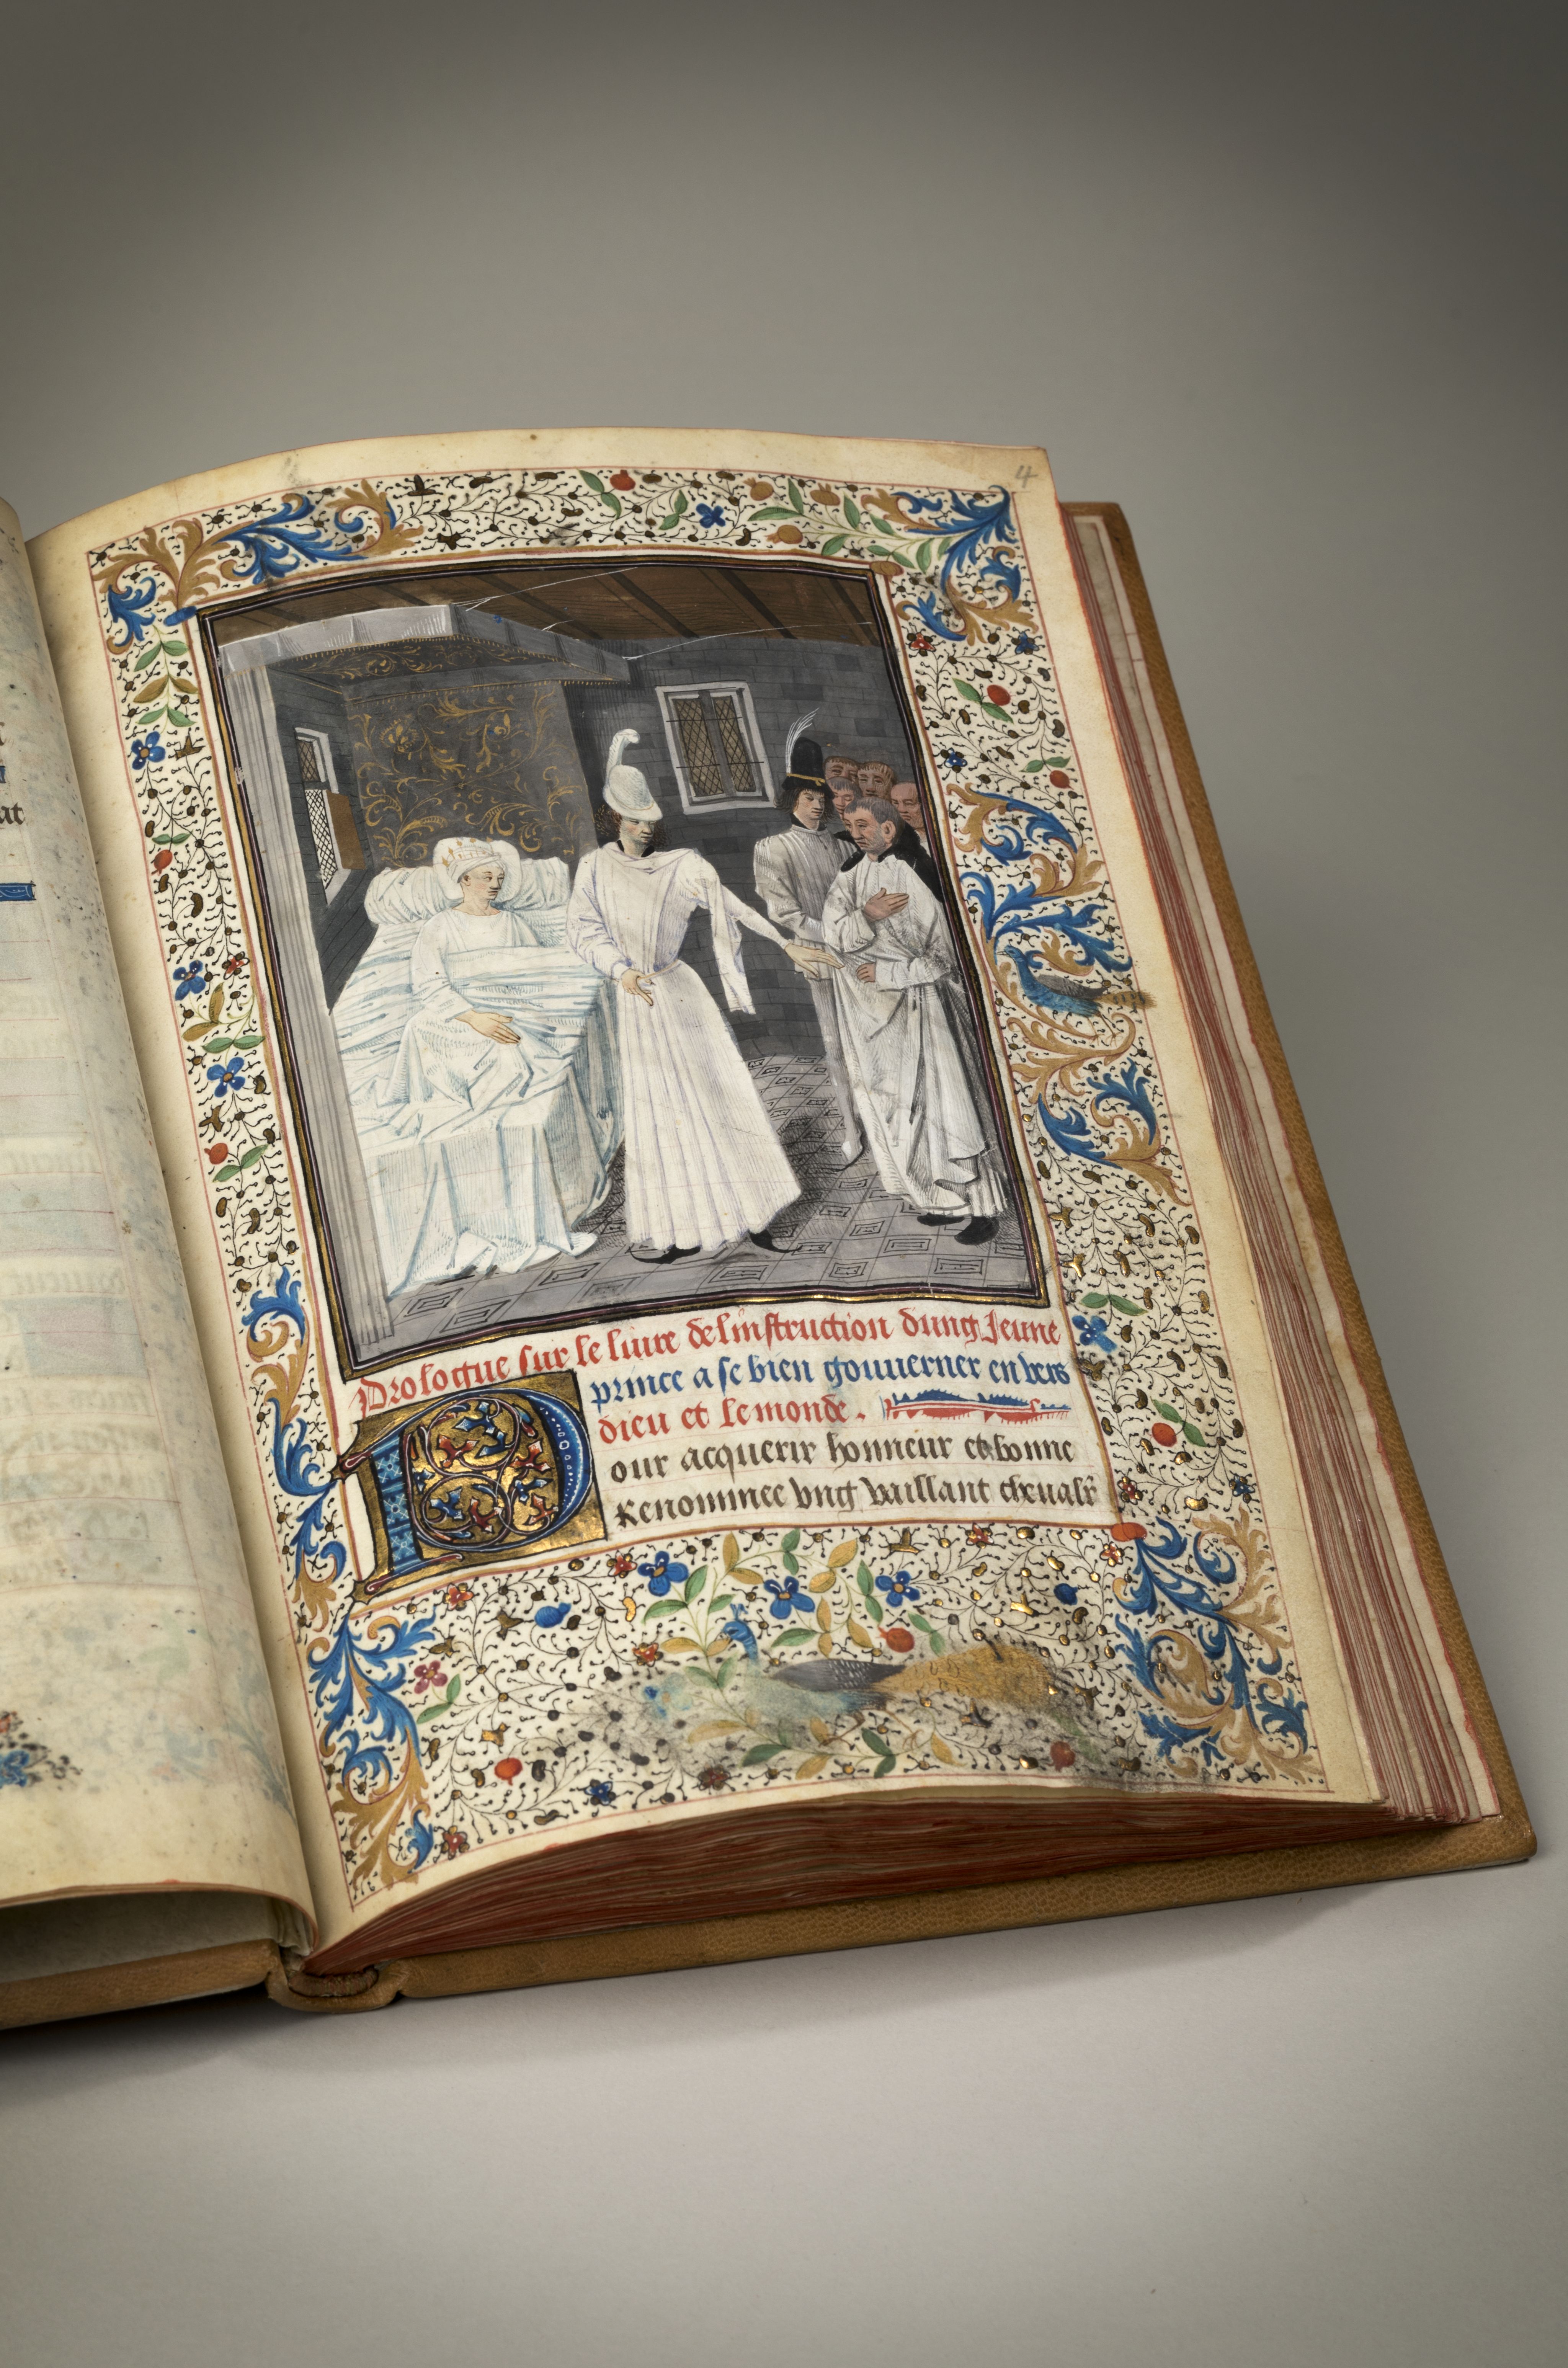 at
4
Prologue sur le liure de linstruction dung Jeune
prince a se bien gouuerner enuers
dieu et le monde.
Pour acquerir honneur et bonne
Renommee vng vaillant cheualr